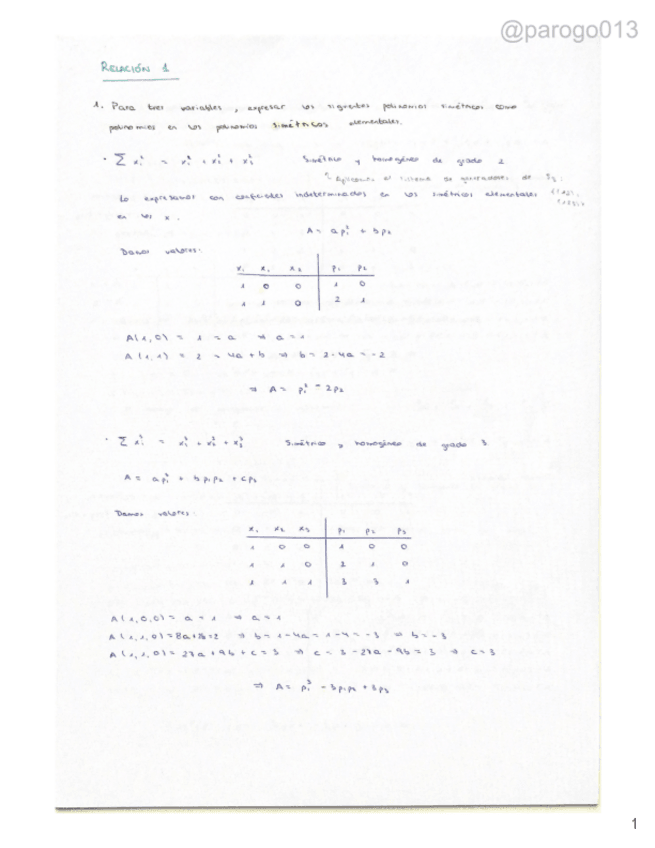 @parogo013
RELACIÓN 1
1. Para tres variables, expresar los siguientes polinomios simétricos como
polinomios en los polinomios simétricos elementales.
· Σ xᵢ² = x₁² + x₂² + x₃² Simétrico y homogéneo de grado 2
Lo expresamos con coeficientes indeterminados en los simétricos elementales
en los x.
A = ap₁² + bp₂
Damos valores:
x₁ x₂ x₃ p₁ p₂
1 0 0 1 0
1 1 0 2 1
A(1,0) = 1 = a ⇒ a = 1
A(1,1) = 2 = 4a + b ⇒ b = 2 - 4a = -2
⇒ A = p₁² - 2p₂
· Σ xᵢ³ = x₁³ + x₂³ + x₃³ Simétrico y homogéneo de grado 3
A = ap₁³ + bp₁p₂ + cp₃
Damos valores:
x₁ x₂ x₃ p₁ p₂ p₃
1 0 0 1 0 0
1 1 0 2 1 0
1 1 1 3 3 1
A(1,0,0) = a = 1 ⇒ a = 1
A(1,1,0) = 8a + 2b = 2 ⇒ b = 1 - 4a = 1 - 4 = -3 ⇒ b = -3
A(1,1,0) = 27a + 9b + c = 3 ⇒ c = 3 - 27a - 9b = 3 ⇒ c = 3
⇒ A = p₁³ - 3p₁p₂ + 3p₃
1